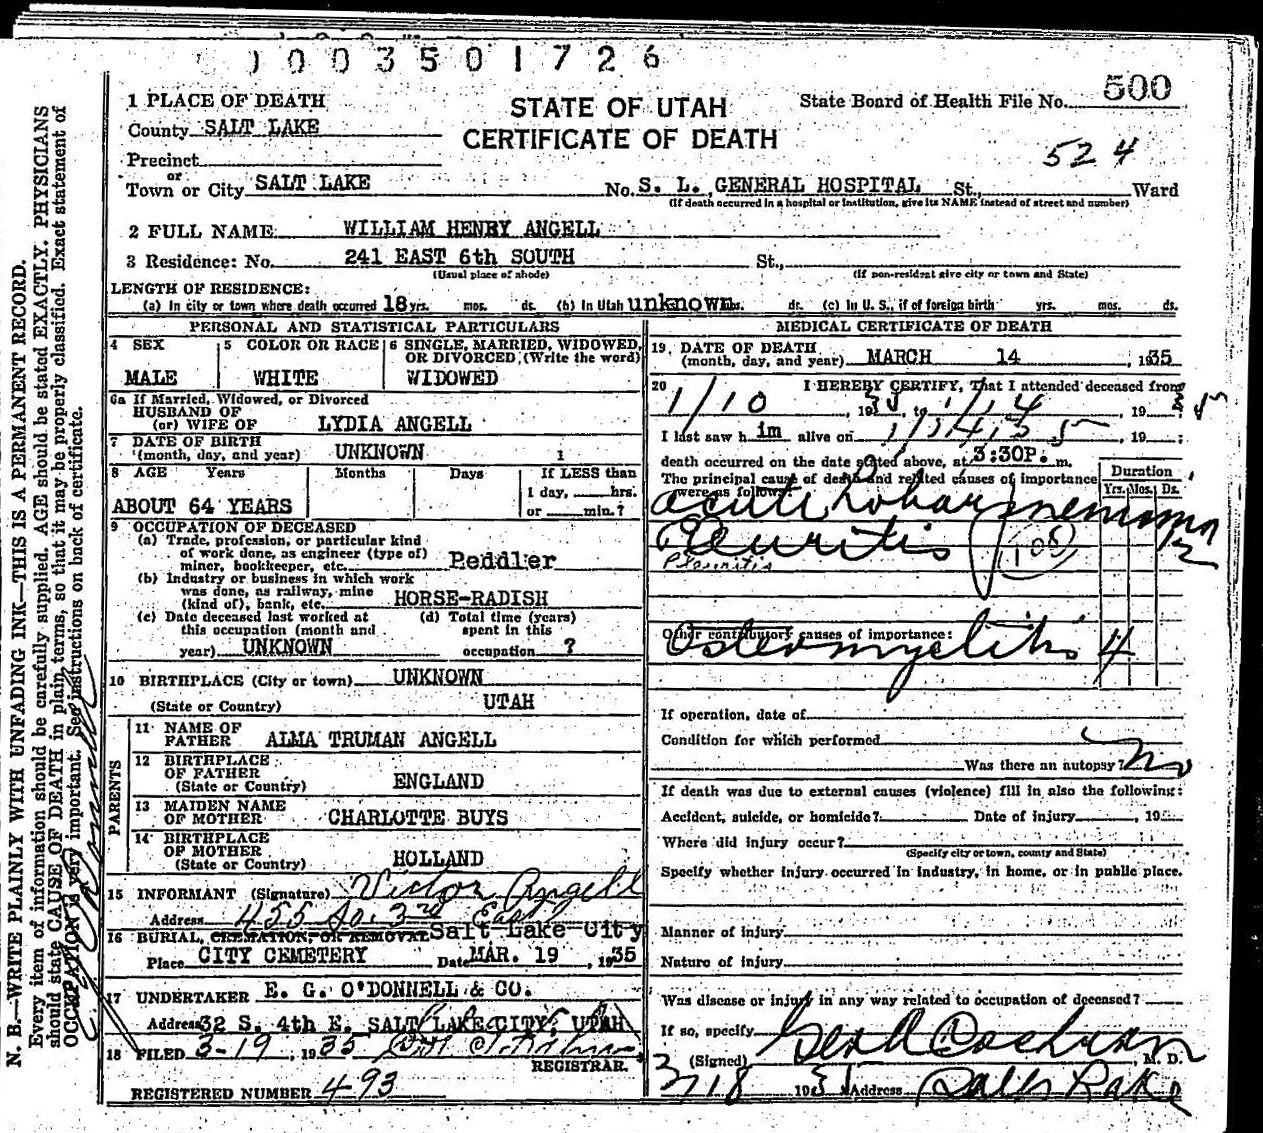 1003501726
500
1 PLACE OF DEATH
STATE OF UTAH
State Board of Health File No.
County SALT LAKE
CERTIFICATE OF DEATH
Precinct
524
or
Town or City SALT LAKE No. S. L. GENERAL HOSPITAL St., Ward
(If death occurred in a hospital or institution, give its NAME instead of street and number)
2 FULL NAME WILLIAM HENRY ANGELL
3 Residence: No. 241 EAST 6th SOUTH St.,
(Usual place of abode) (If non-resident give city or town and State)
LENGTH OF RESIDENCE:
(a) In city or town where death occurred 18 yrs. mos. ds. (b) In Utah unknown ds. (c) In U. S., if of foreign birth yrs. mos. ds.
PERSONAL AND STATISTICAL PARTICULARS
4 SEX 5 COLOR OR RACE 6 SINGLE, MARRIED, WIDOWED, OR DIVORCED, (Write the word)
MALE WHITE WIDOWED
6a If Married, Widowed, or Divorced
HUSBAND OF
(or) WIFE OF LYDIA ANGELL
7 DATE OF BIRTH
(month, day, and year) UNKNOWN 1
8 AGE Years Months Days If LESS than
1 day, hrs.
ABOUT 64 YEARS or min.?
9 OCCUPATION OF DECEASED
(a) Trade, profession, or particular kind
of work done, as engineer (type of)
miner, bookkeeper, etc. Peddler
(b) Industry or business in which work
was done, as railway, mine
(kind of), bank, etc. HORSE-RADISH
(c) Date deceased last worked at (d) Total time (years)
this occupation (month and spent in this
year) UNKNOWN occupation ?
10 BIRTHPLACE (City or town) UNKNOWN
(State or Country) UTAH
PARENTS
11 NAME OF
FATHER ALMA TRUMAN ANGELL
12 BIRTHPLACE
OF FATHER
(State or Country) ENGLAND
13 MAIDEN NAME
OF MOTHER CHARLOTTE BUYS
14 BIRTHPLACE
OF MOTHER
(State or Country) HOLLAND
15 INFORMANT (Signature) Victor Angell
Address 455 So. 3rd East
16 BURIAL, CREMATION, OR REMOVAL Salt Lake City
Place CITY CEMETERY Date MAR. 19, 1935
17 UNDERTAKER E. G. O'DONNELL & CO.
Address 32 S. 4th E. SALT LAKE CITY, UTAH
18 FILED 3-19, 1935
REGISTRAR.
REGISTERED NUMBER 493
MEDICAL CERTIFICATE OF DEATH
19. DATE OF DEATH
(month, day, and year) MARCH 14, 1935
20 I HEREBY CERTIFY, That I attended deceased from
1/10, 1935, to 1/14, 1935
I last saw him alive on 1/14 35, 19 ;
death occurred on the date stated above, at 3:30P. m.
The principal cause of death and related causes of importance
were as follows:
Duration
Yrs. Mos. Ds.
acute Lobar pneumonia
Pleuritis 108 12
Pleuritis
Other contributory causes of importance:
Osteomyelitis 4
If operation, date of
Condition for which performed
Was there an autopsy? No
If death was due to external causes (violence) fill in also the following:
Accident, suicide, or homicide? Date of injury, 19
Where did injury occur?
(Specify city or town, county and State)
Specify whether injury occurred in industry, in home, or in public place.
Manner of injury
Nature of injury
Was disease or injury in any way related to occupation of deceased?
If so, specify
(Signed) Geo A Cochran, M. D.
3/18 193 Address Salt Lake
N. B.—WRITE PLAINLY WITH UNFADING INK—THIS IS A PERMANENT RECORD.
Every item of information should be carefully supplied. AGE should be stated EXACTLY. PHYSICIANS
should state CAUSE OF DEATH in plain terms, so that it may be properly classified. Exact statement of
OCCUPATION is very important. See instructions on back of certificate.